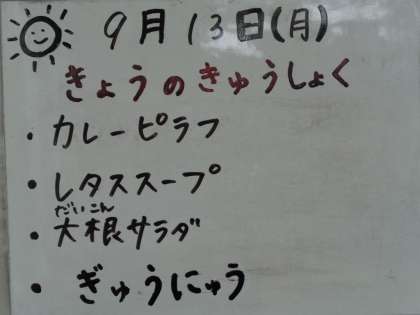 9月13日(月)
きょうのきゅうしょく
・カレーピラフ
・レタススープ
だいこん
・大根サラダ
・ぎゅうにゅう